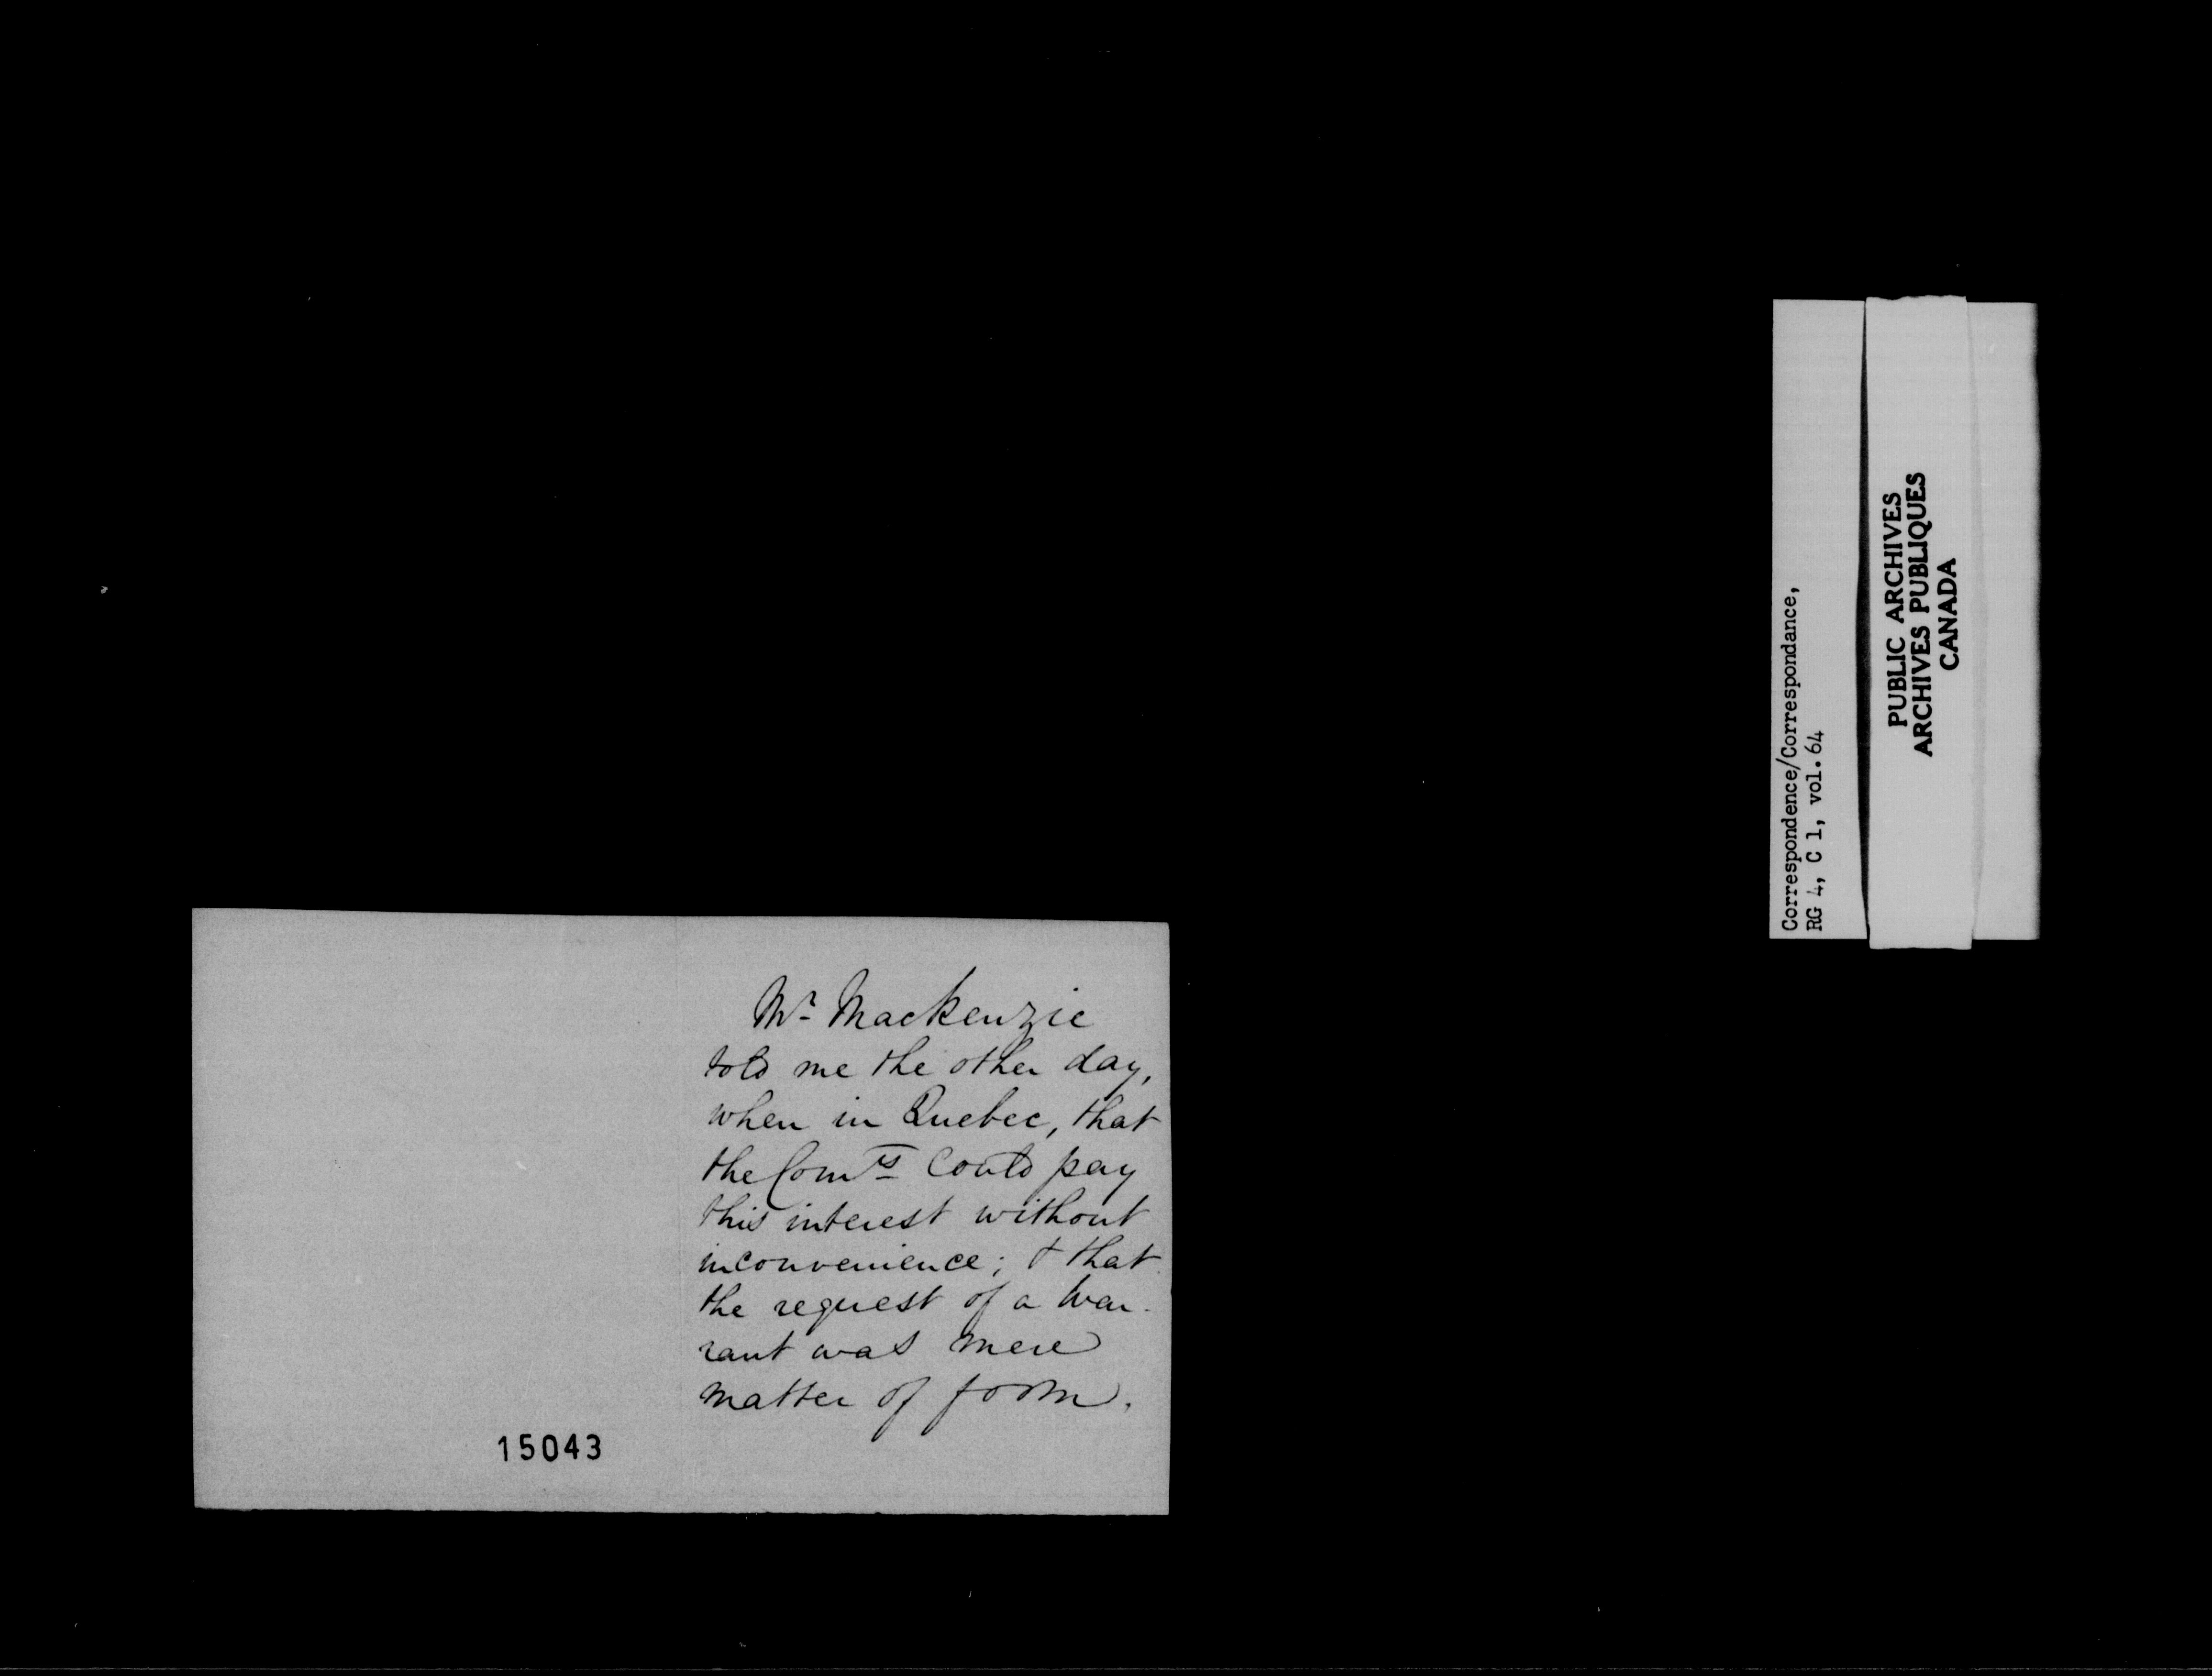 Mr Mackenzie
told me the other day,
when in Quebec, that
the Comrs could pay
this interest without
inconvenience; & that
the request of a war-
rant was mere
matter of form.
15043
Correspondence/Correspondance,
RG 4, C 1, vol. 64
PUBLIC ARCHIVES
ARCHIVES PUBLIQUES
CANADA